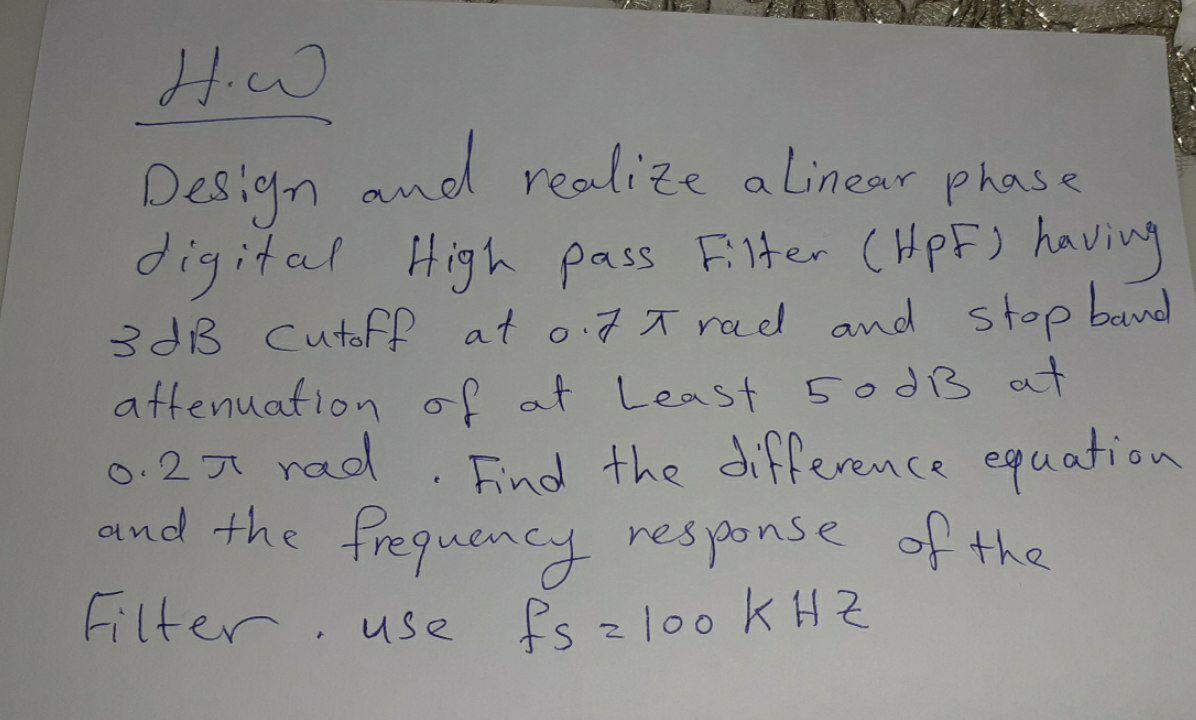 H.W
Design and realize a Linear phase
digital High pass Filter (HpF) having
3dB cutoff at 0.7 π rad and stop band
attenuation of at Least 50dB at
0.2 π rad . Find the difference equation
and the frequency response of the
Filter . use fs = 100 KHZ